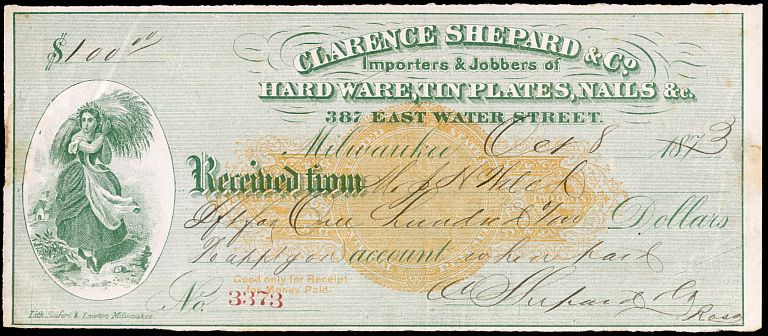 $100.00
CLARENCE SHEPARD & CO.
Importers & Jobbers of
HARDWARE, TIN PLATES, NAILS &c.
387 EAST WATER STREET.
Milwaukee Oct 8 1873
Received from
for One Hundred Dollars
To apply on account when paid
Good only for Receipt
for Money Paid.
No. 3373
C Shepard & Co
Lith. Seifert & Lawton Milwaukee.